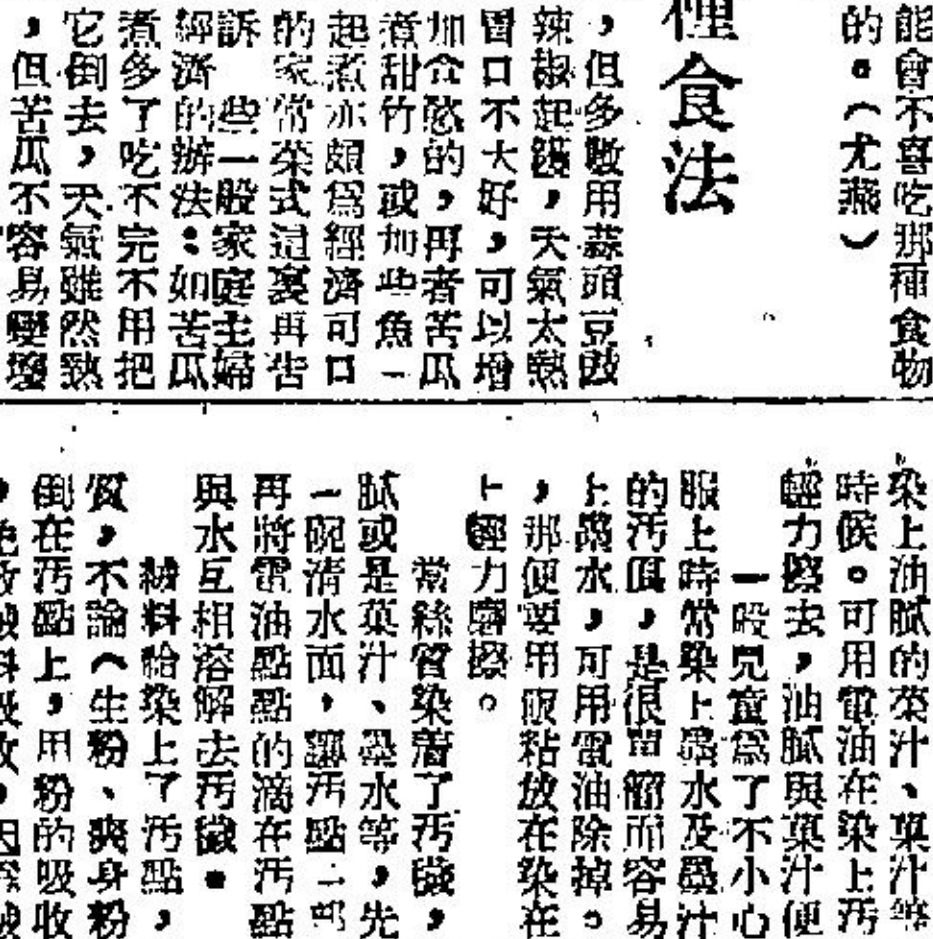 能會不喜吃那種食物
的。(尤燕)
種食法
,但多數用蒜頭豆豉
辣椒起鑊,天氣太熱
胃口不大好,可以增
加食慾的,再者苦瓜
煮甜竹,或加些魚一
起煮亦頗為經濟可口
的家常菜式這裏再告
訴一些一般家庭主婦
經濟的辦法:如苦瓜
煮多了吃不完不用把
它倒去,天氣雖然熱
,但苦瓜不容易變壞
染上油膩的菜汁、菓汁等
時候。可用電油在染上污
輕力擦去,油膩與菓汁便
一般兒童為了不小心
服上時常染上墨水及墨汁
的污漬,是很單簡而容易
上墨水,可用電油除掉。
,那便要用飯粘放在染在
上輕力磨擦。
常絲質染着了污漬,
膩或是菓汁、墨水等,先
一碗清水面,讓污點一部
再將電油點點的滴在污點
與水互相溶解去污漬。
絨料給染上了污點,
質,不論(生粉、爽身粉
倒在污點上,用粉的吸收